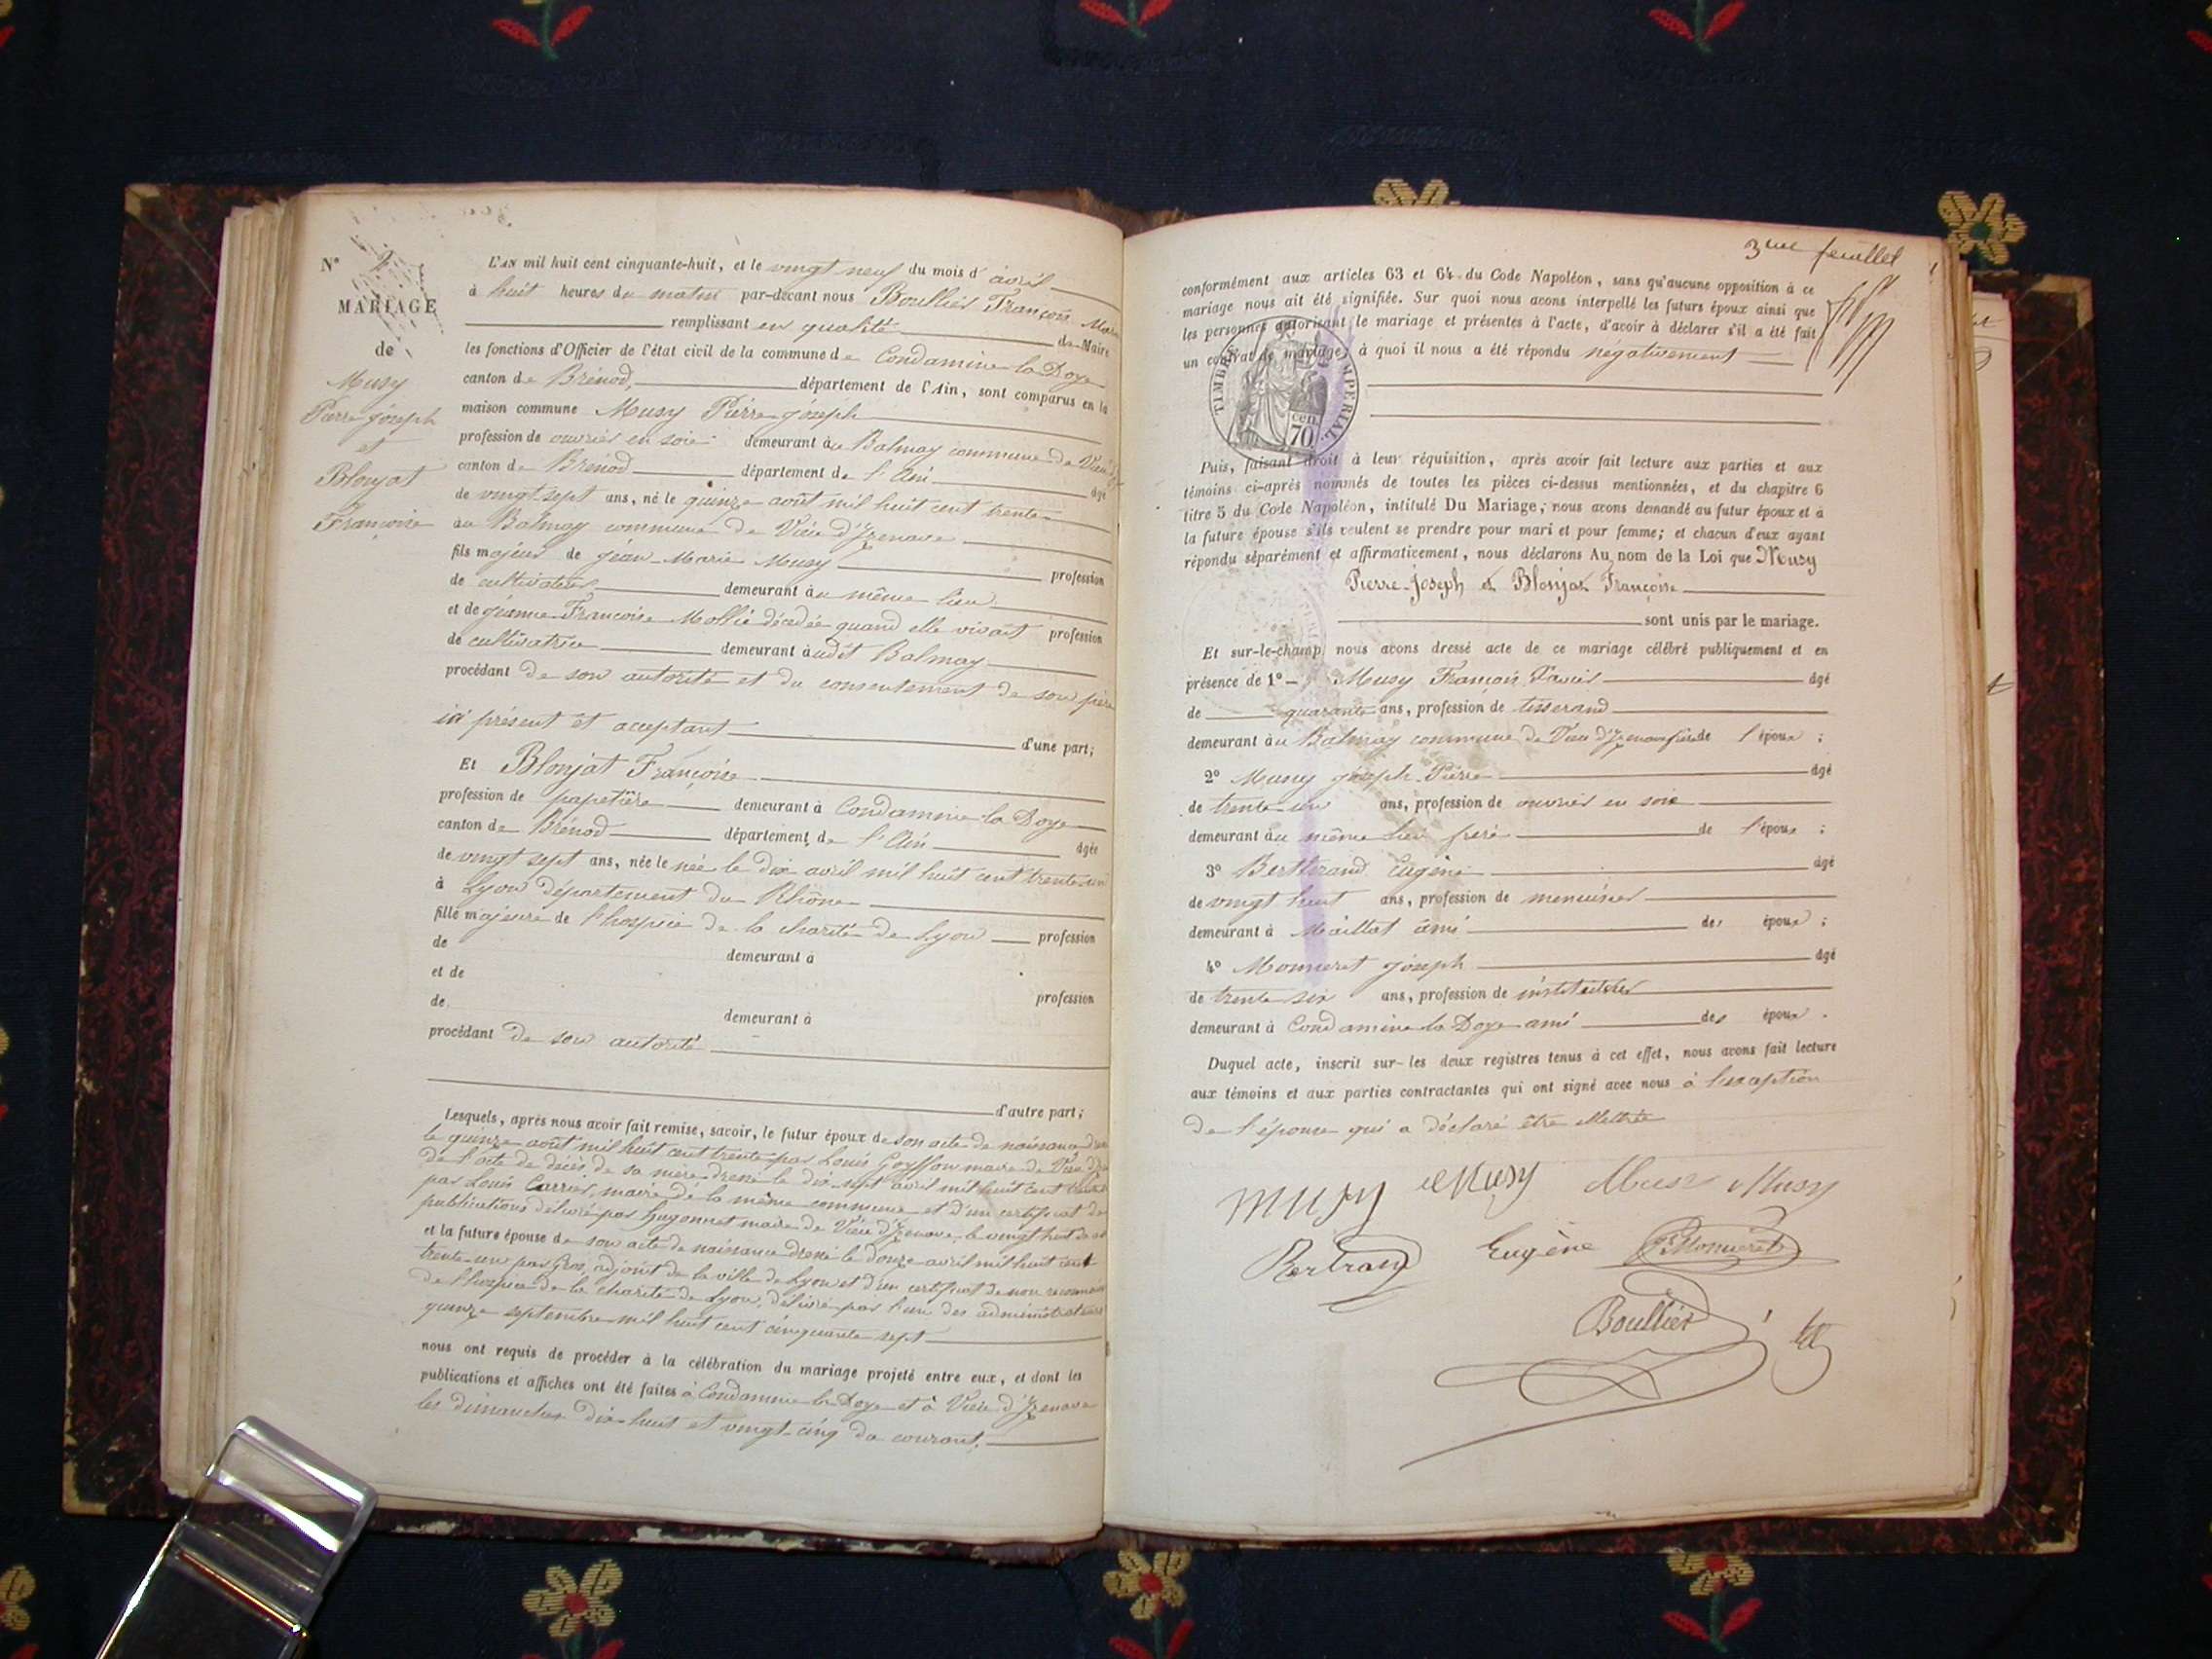 N°
MARIAGE
de
Musy
Pierre joseph
et
Blonjat
Françoise
L'AN mil huit cent cinquante-huit, et le vingt neuf du mois d'avril
à huit heures du matin par-devant nous Boullier François Maire
remplissant en qualité de Maire
les fonctions d'Officier de l'état civil de la commune de Condamine la Doye
canton de Brénod, département de l'Ain, sont comparus en la
maison commune Musy Pierre joseph
profession de ouvrier en soie demeurant au Balmay commune de Vieu
canton de Brénod département de l'Ain âgé
de vingt sept ans, né le quinze août mil huit cent trente
au Balmay commune de Vieu d'Izenave
fils majeur de jéan-Marie Musy profession
de cultivateur demeurant au même lieu
et de jéanne Françoise Mollie décédée quand elle vivait profession
de cultivatrice demeurant audit Balmay
procédant de son autorité et du consentement de son père
ici présent et acceptant d'une part;
Et Blonjat Françoise
profession de papetière demeurant à Condamine la Doye
canton de Brénod département de l'Ain âgée
de vingt sept ans, née le née le dix avril mil huit cent trente un
à Lyon département du Rhône
fille majeure de l'hospice de la charité de Lyon profession
de demeurant à
et de
de profession
demeurant à
procédant de son autorité
d'autre part;
Lesquels, après nous avoir fait remise, savoir, le futur époux de son acte de naissance
le quinze août mil huit cent trente par Louis Goyffon maire de Vieu
de l'acte de décès de sa mère dressé le dix sept avril mil huit cent
par Louis Carrier, maire de la même commune et d'un certificat de
publications délivré par Hugonnet maire de Vieu d'Izenave, le vingt huit
et la future épouse de son acte de naissance dressé le douze avril mil huit cent
trente-un par Gros, adjoint de la ville de Lyon et d'un certificat de non
de l'hospice de la charité de Lyon, délivré par l'un des administrateurs
quinze septembre mil huit cent cinquante sept
nous ont requis de procéder à la célébration du mariage projeté entre eux, et dont les
publications et affiches ont été faites à Condamine la Doye et à Vieu d'Izenave
les dimanches dix-huit et vingt-cinq du courant.
3me feuillet
conformément aux articles 63 et 64 du Code Napoléon, sans qu'aucune opposition à ce
mariage nous ait été signifiée. Sur quoi nous avons interpellé les futurs époux ainsi que
les personnes autorisant le mariage et présentes à l'acte, d'avoir à déclarer s'il a été fait
un contrat de mariage, à quoi il nous a été répondu négativement
TIMBRE IMPÉRIAL
cen.
70
Puis, faisant droit à leur réquisition, après avoir fait lecture aux parties et aux
témoins ci-après nommés de toutes les pièces ci-dessus mentionnées, et du chapitre 6
titre 5 du Code Napoléon, intitulé Du Mariage, nous avons demandé au futur époux et à
la future épouse s'ils veulent se prendre pour mari et pour femme; et chacun d'eux ayant
répondu séparément et affirmativement, nous déclarons Au nom de la Loi que Musy
Pierre-Joseph et Blonjat Françoise
sont unis par le mariage.
Et sur-le-champ nous avons dressé acte de ce mariage célébré publiquement et en
présence de 1° Musy François Xavier âgé
de quarante ans, profession de tisserand
demeurant au Balmay commune de Vieu d'Izenave frère de l'époux ;
2° Musy joseph-Pierre âgé
de trente-un ans, profession de ouvrier en soie
demeurant au même lieu frère de l'époux ;
3° Berthrand Eugène âgé
de vingt huit ans, profession de menuisier
demeurant à Maillat ami des époux ;
4° Monneret joseph âgé
de trente six ans, profession de instituteur
demeurant à Condamine la Doye ami des époux.
Duquel acte, inscrit sur les deux registres tenus à cet effet, nous avons fait lecture
aux témoins et aux parties contractantes qui ont signé avec nous à l'exception
de l'épouse qui a déclaré être illettrée
Musy Musy Musy
Bertrand Eugène Monneret
Boullier